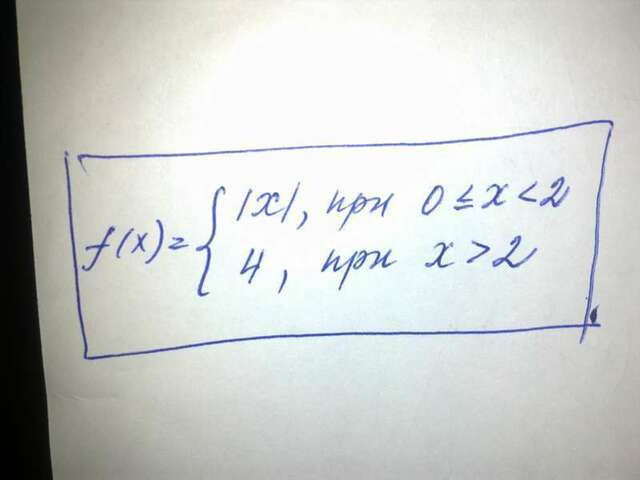 f(x) = { |x|, при 0 ≤ x < 2
4, при x > 2